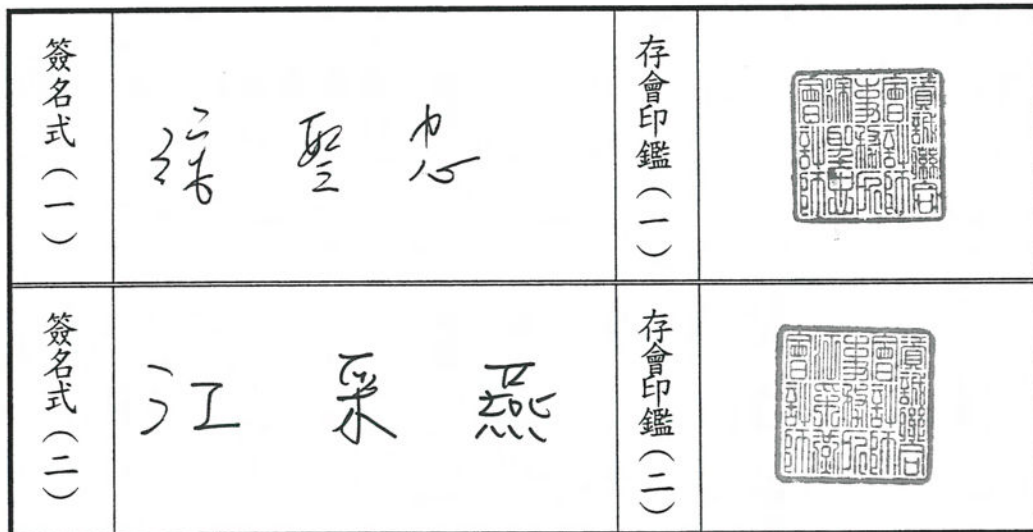 簽名式(一)
涂聖忠
存會印鑑(一)
資誠聯合
會計師
事務所
涂聖忠
會計師
簽名式(二)
江采燕
存會印鑑(二)
資誠聯合
會計師
事務所
江采燕
會計師